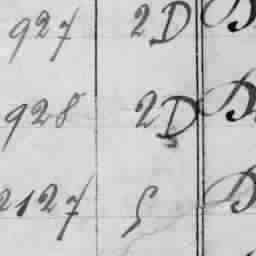 927 2D D
928 2D D
2127 D